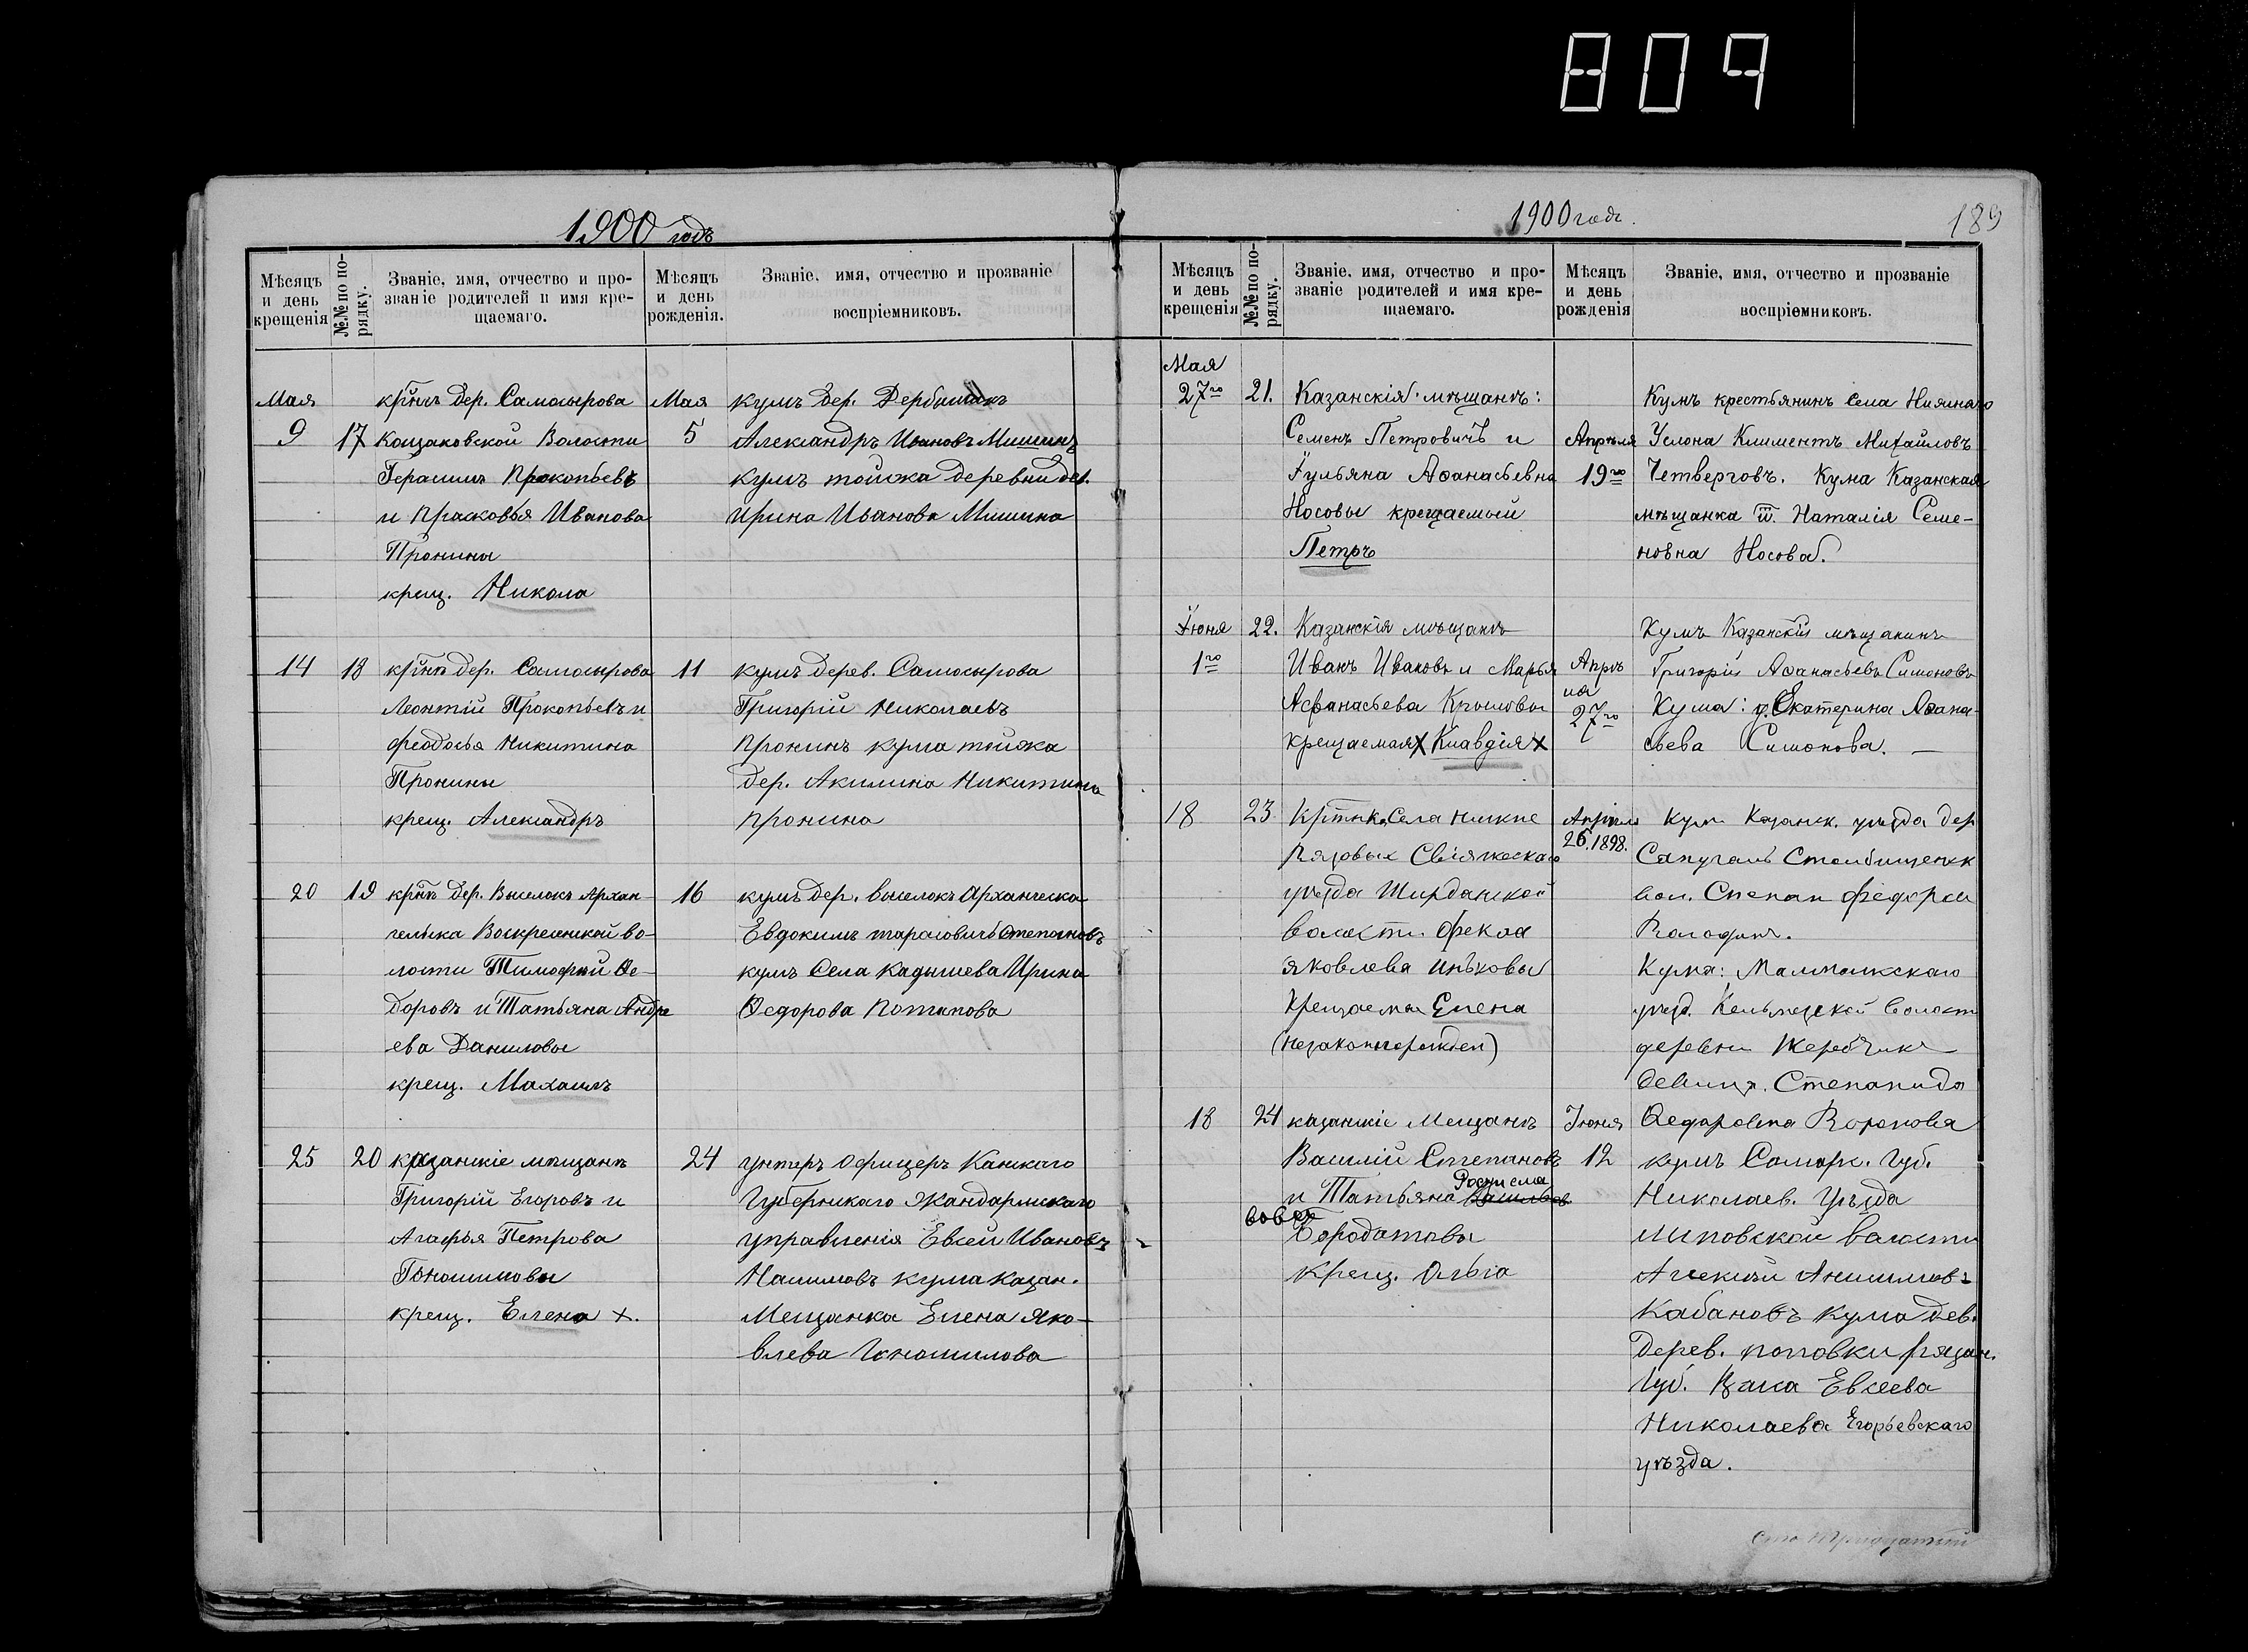 809
1900 годъ
Мѣсяцъ и день крещенія
№№ по порядку.
Званіе, имя, отчество и прозваніе родителей и имя крещаемаго.
Мѣсяцъ и день рожденія.
Званіе, имя, отчество и прозваніе воспріемниковъ.
Мая
9
17
кр̃нъ дер. Самосырова
Кощаковской Волости
Герасимъ Прокопьевъ
и Прасковья Иванова
Пронины
крещ. Никола
Мая
5
кумъ дер. Дербышекъ
Александръ Ивановъ Мишинъ
кумъ тойжа деревни дев.
Ирина Иванова Мишина
14
18
кр̃нъ дер. Самосырова
Леонтій Прокопьевъ и
Феодосья Никитина
Пронины
крещ. Александръ
11
кумъ дерев. Самосырова
Григорій Николаевъ
Пронинъ кума тойжа
дер. Акилина Никитина
Пронина
20
19
кр̃нъ дер. Выселокъ Архан-
гельска Воскресенской во-
лости Тимофей Ѳе-
доровъ и Татьяна Андре
ева Даниловы
крещ. Михаилъ
16
кумъ дер. выселокъ Архангеска
Евдокимъ тарасовичъ Степановъ
кумъ Села Кадышева Ирина
Ѳедорова Потапова
25
20
казанскіе мѣщанѣ
Григорій Егоровъ и
Агафья Петрова
крещ. Елена х.
24
унтеръ офицеръ
Губернскаго Жандармскаго
управленія Евсей Ивановъ
кума казан.
Мещанка Елена Яко-
влева
1900 годъ.
189
Мѣсяцъ и день крещенія
№№ по порядку.
Званіе, имя, отчество и прозваніе родителей и имя крещаемаго.
Мѣсяцъ и день рожденія
Званіе, имя, отчество и прозваніе воспріемниковъ.
Мая
27го
21.
Казанскія мѣщанѣ:
Семенъ Петровичъ и
Іульяна Аѳанасьевна
Носовы крещаемый
Петръ
Апрѣля
19го
Кумъ крестьянинъ села Нижняго
Услона Климентъ Михайловъ
Четверговъ. Кума Казанская
мѣщанка д. Наталія Семе-
новна Носова.
Іюня
1го
22.
Казанскія мѣщанѣ
Иванъ Ивановъ и Марья
Асфанасьева Крымовы
Крещаемая х Клавдія х
Апрѣ
ля
27го
Кумъ Казанскій мѣщанинъ
Григорій Аѳанасьевъ Симоновъ
Кума: д. Екатерина Аѳана-
сьева Симонова. —
18
23
Села Нижніе
Вязовые Свіяжскаго
уѣзда Ширданской
волости Фекла
Яковлева
Крещаема Елена
Апрѣля
26. 1898.
Кумъ Казанск. уѣзда дер
вол. Степан Федоров
Кума: Малмыжскаго
уѣзд. волост
деревни
Девица. Степанида
Ѳедоровна Воронова
18
24
казанскіе Мещанѣ
Василій Степановъ
и Татьяна Васильев
Бородатовы
крещ. Ольга
Іюня
12
кумъ Самарс. Губ.
Николаев. Уѣзда
Липовской волости
Алексѣй Анисимовъ
Кабановъ Кума дев.
Дерев. поповки рязан.
Губ. Васа Евсеева
Николаева Егорьевскаго
уѣзда.